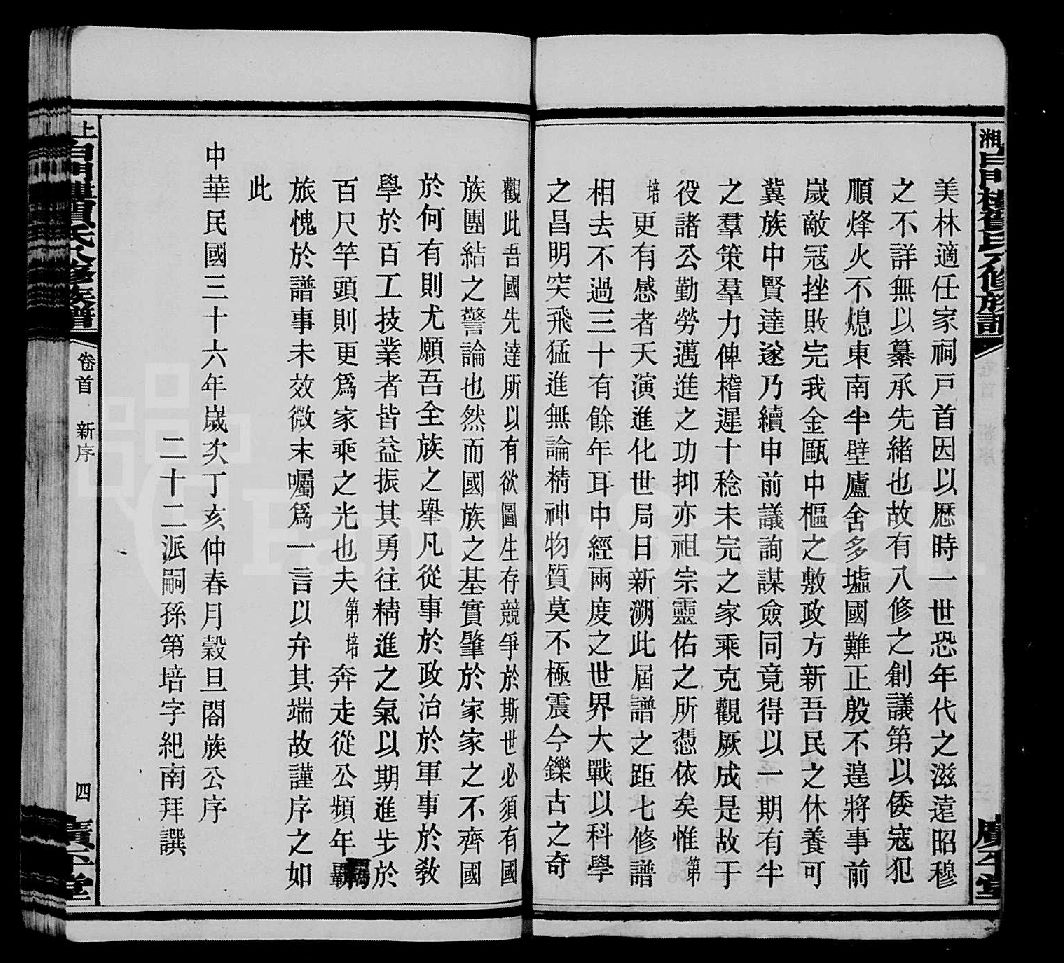 美林適任家祠戸首因以歷時一世恐年代之滋遠昭穆
之不詳無以纂承先緒也故有八修之創議第以倭寇犯
順烽火不熄東南半壁廬舍多墟國難正殷不遑將事前
歲敵寇挫敗完我金甌中樞之敷政方新吾民之休養可
冀族中賢達遂乃續申前議詢謀僉同竟得以一期有半
之羣策羣力俾稽遲十稔未完之家乘克觀厥成是故于
役諸公勤勞邁進之功抑亦祖宗靈佑之所憑依矣惟第
培更有感者天演進化世局日新溯此屆譜之距七修譜
相去不過三十有餘年耳中經兩度之世界大戰以科學
之昌明突飛猛進無論精神物質莫不極震今鑠古之奇
觀此吾國先達所以有欲圖生存競爭於斯世必須有國
族團結之警論也然而國族之基實肇於家家之不齊國
於何有則尤願吾全族之舉凡從事於政治於軍事於教
學於百工技業者皆益振其勇往精進之氣以期進步於
百尺竿頭則更爲家乘之光也夫第培奔走從公頻年羈
旅愧於譜事未效微末囑爲一言以弁其端故謹序之如
此
中華民國三十六年歲次丁亥仲春月穀旦閣族公序
二十二派嗣孫第培字紀南拜譔
卷首 新序
四